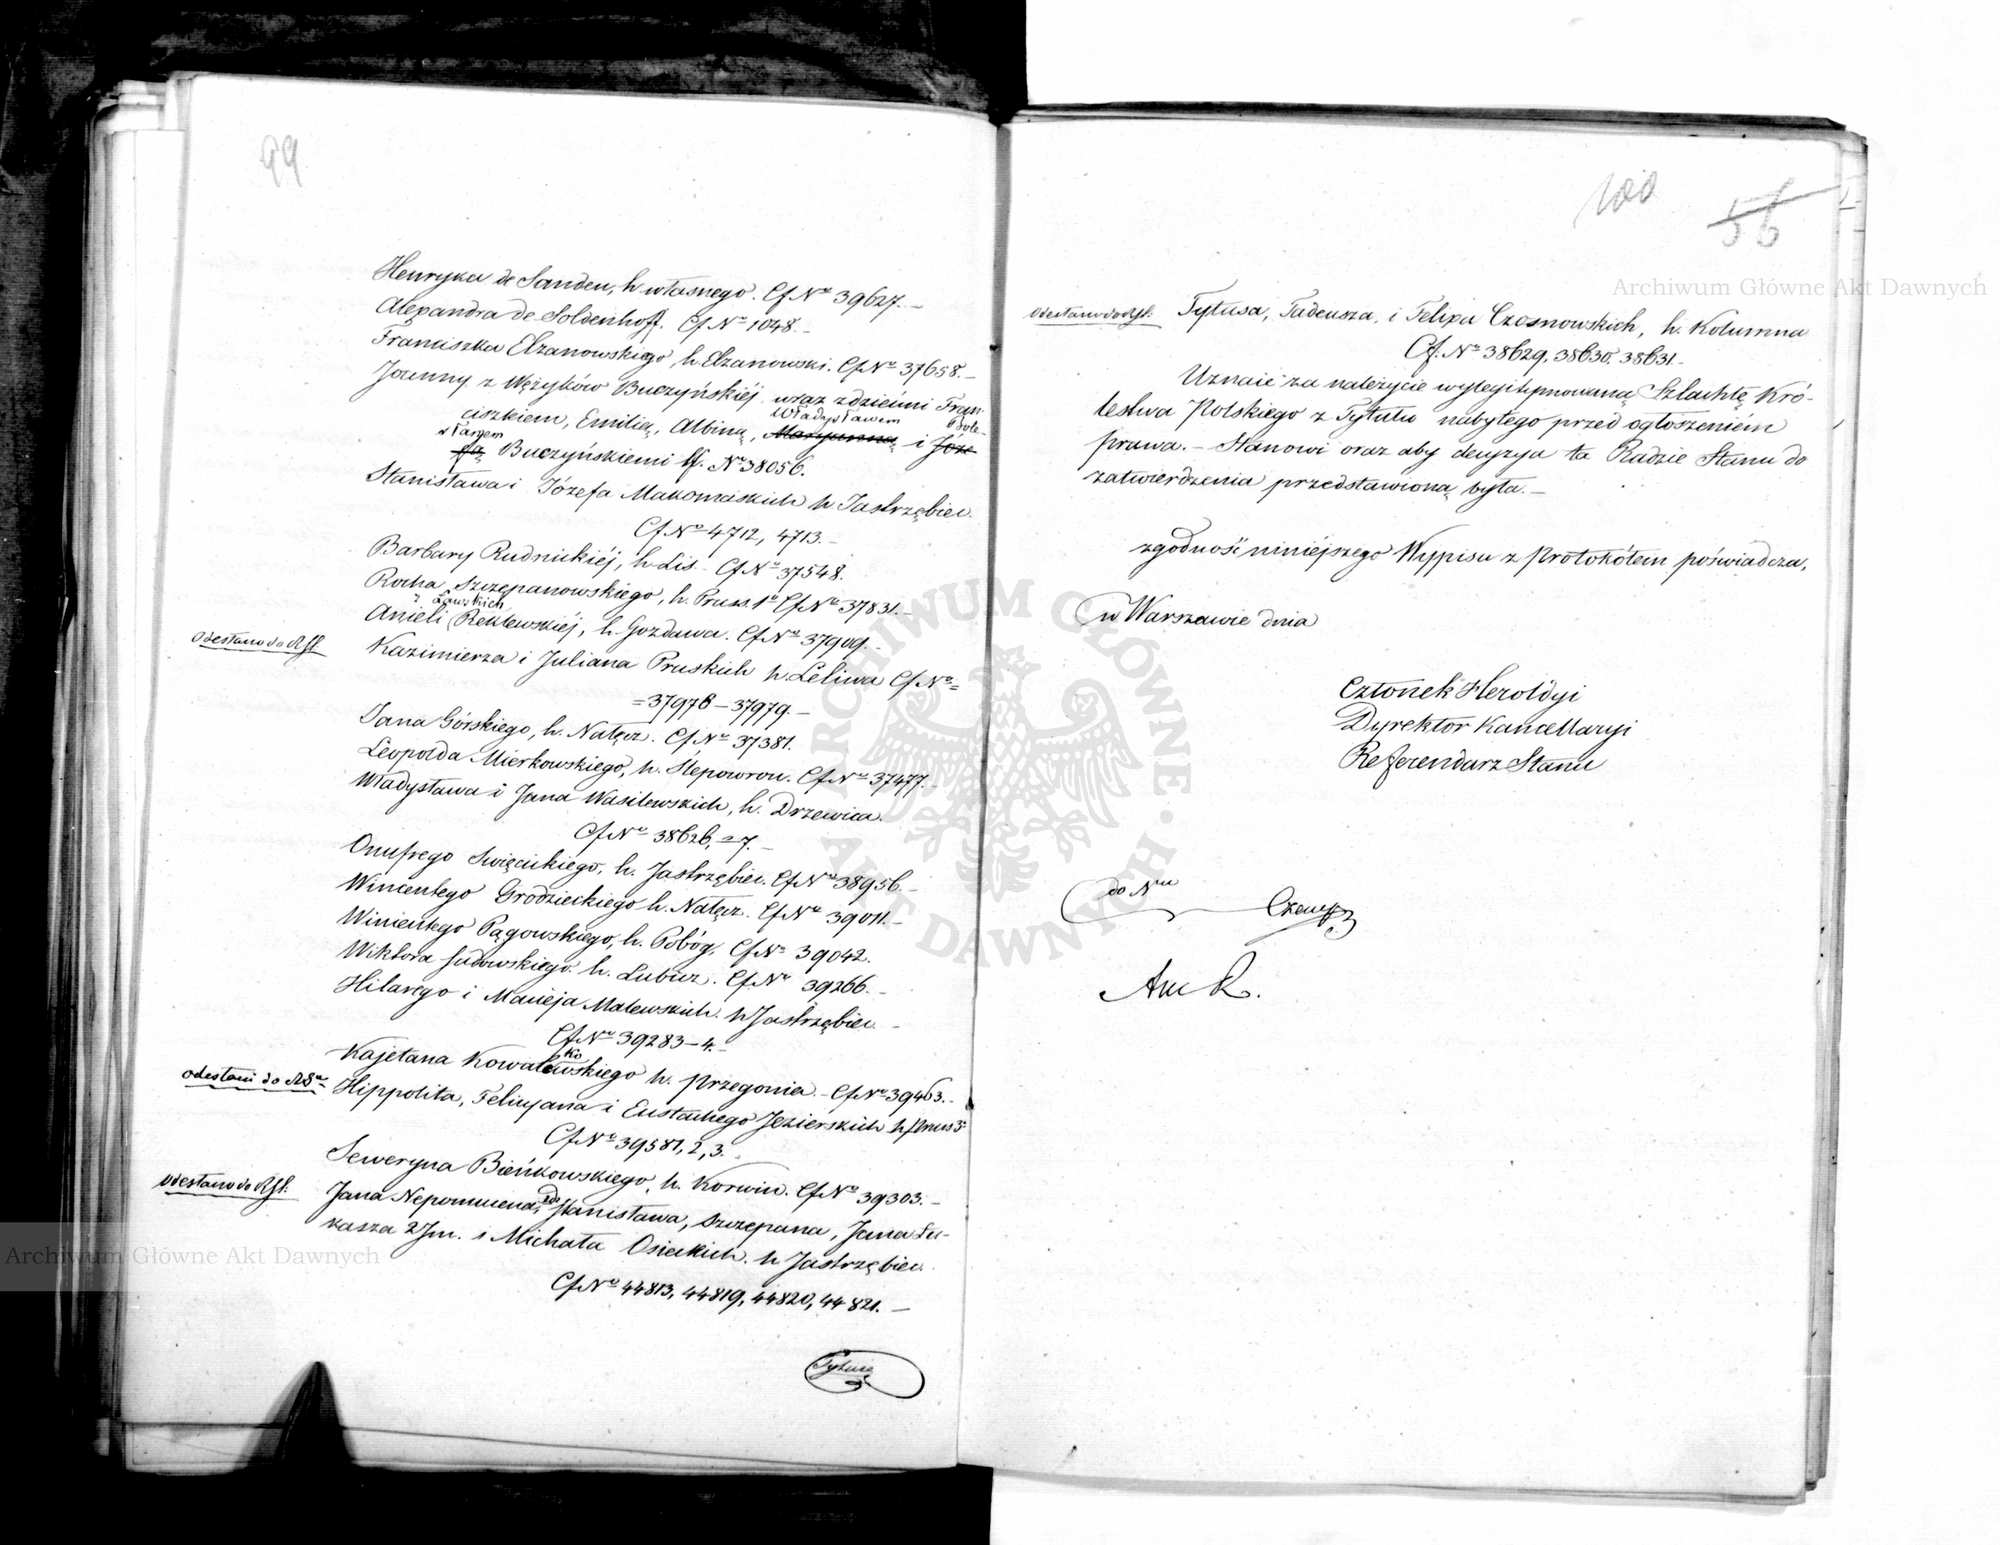 99
Henryka de Sanden, h własnego. Cf No 39627.–
Alexandra de Soldenhoff. Cf No 1048.–
Franciszka Elzanowskiego, h. Elzanowski. Cf No 37658.–
Joanny z Wężyków Buczyńskiéj wraz z dziećmi Fran-
ciszkiem, Emilią, Albiną, Maryanną i Józe-
Władysławem Bole-
sławem
fą Buczyńskiemi Cf. No 38056.
Stanisława i Józefa Makomaskich h. Jastrzębiec.
Cf No 4712, 4713.–
Barbary Rudnickiéj, h. Lis. Cf No 37548.
Rocha Szczepanowskiego, h. Pruss. 1o Cf No 37831.–
z Ławskich
Anieli Reklewskiéj, h. Gozdawa. Cf No 37909.–
Odesłano do RSt.
Kazimierza i Juliana Pruskich h. Leliwa Cf No =
= 37978 – 37979.–
Jana Górskiego, h. Nałęcz. Cf No 37381.
Leopolda Mierkowskiego, h. Slepowron. Cf No 37477.–
Władysława i Jana Wasilewskich, h. Drzewica.
Cf No 38626, = 7.–
Onufrego Swięcickiego, h. Jastrzębiec. Cf No 38956.–
Wincentego Grodzieckiego h. Nałęcz. Cf No 39011.–
Winientego Pągowskiego, h. Pobóg, Cf No 39042.
Wiktora Sadowskiego h. Lubicz. Cf No 39266.–
Hilarego i Macieja Malewskich. h Jastrzębiec.–
Cf No 39283–4.–
ko
Kajetana Kowalewskiego h. Przegonia.– Cf No 39463.–
odesłani do RSu
Hippolita, Felicyana i Eustachego Jezierskich h Prus 3o
Cf No 39581, 2, 3.
Seweryna Bieńkowskiego, h. Korwin. Cf No 39303.–
Odesłano do RSt.
Jana Nepomucena, Stanisława, Szczepana, Jana Łu-
kasza 2 Jm. i Michała Osieckich. h Jastrzębiec.
Cf No 44813, 44819, 44820, 44821.–
Tytusa
100
56
Odesłano do RSt.
Tytusa, Tadeusza, i Felixa Czosnowskich, h. Kolumna
Cf. No 38629, 38630. 38631.–
Uznaie za należycie wylegitymowaną Szlachtę Kró-
lestwa Polskiego z Tytułu nabytego przed ogłoszeniem
prawa.– Stanowi oraz aby decyzya ta Radzie Stanu do
zatwierdzenia przedstawioną była.–
zgodność niniéjszego Wypisu z Protokółem poświadcza,
w Warszawie dnia
Członek Heroldyi
Dyrektor Kancellaryi
Referendarz Stanu
do Nru
Archiwum Główne Akt Dawnych
Archiwum Główne Akt Dawnych
ARCHIWUM GŁÓWNE AKT DAWNYCH